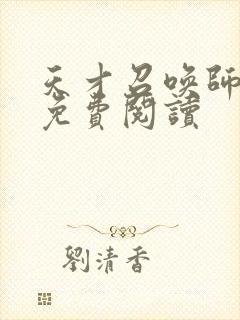 天才召喚師
免費閱讀
劉清香